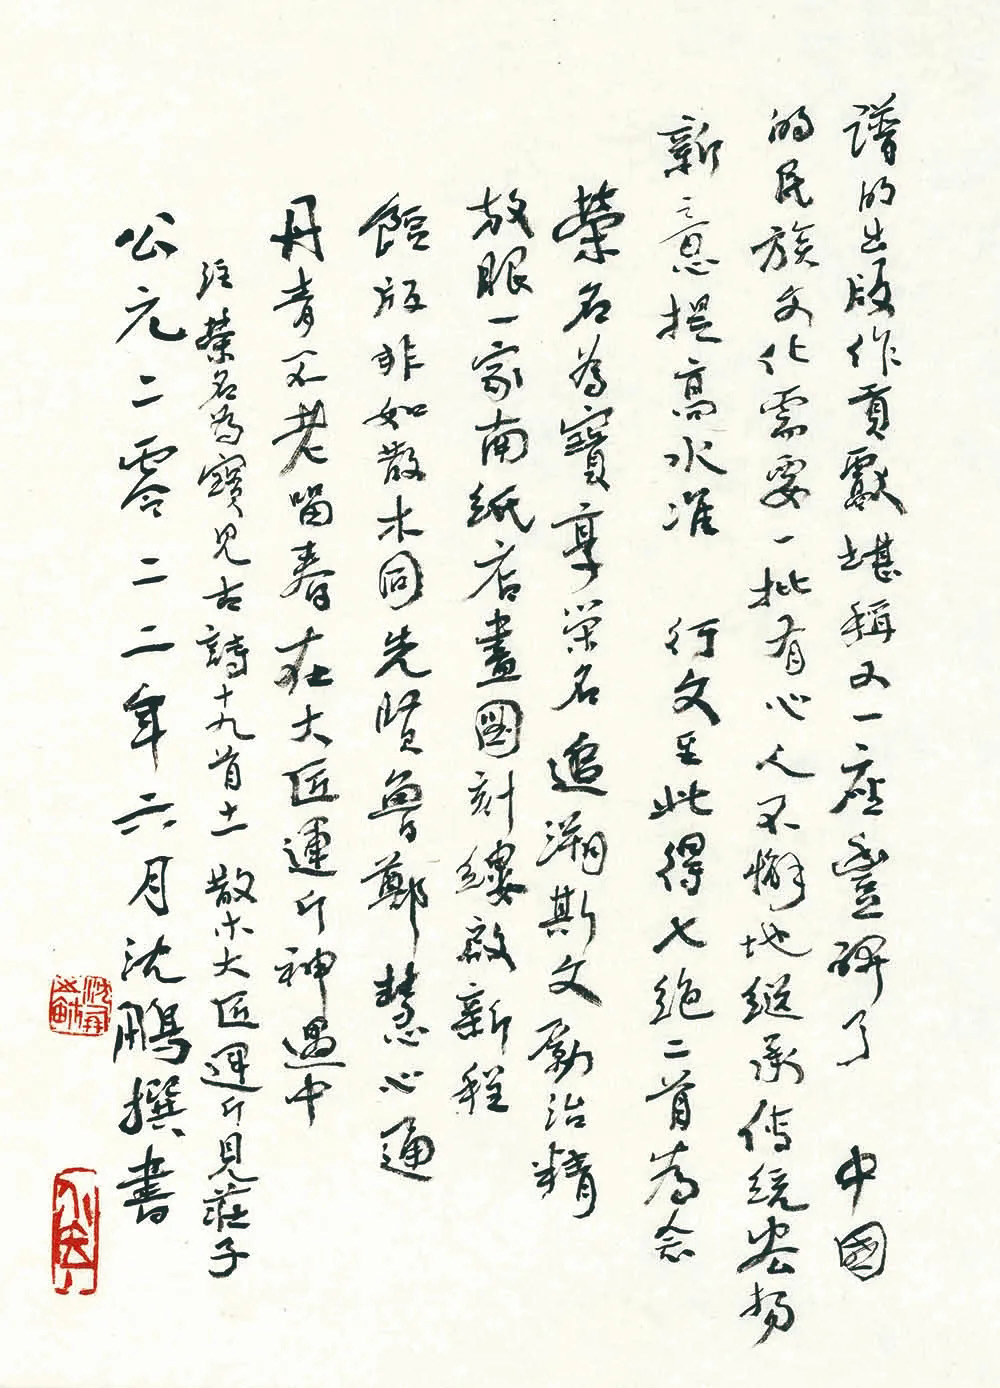 譜的出版作貢獻堪稱又一座豐碑了 中國
的民族文化需要一批有心人不懈地继承传统發扬
新意提高水准 行文至此得七绝二首為念
榮名為寶享荣名追溯斯文勵治精
放眼一家南纸店畫圖刻鏤啟新程
餖版非如散木同先賢魯鄭慧心通
丹青不老留春在大匠運斤神遇中
注榮名為寶見古詩十九首十一散木大匠運斤見莊子
公元二零二二年六月沈鵬撰書
沈鵬